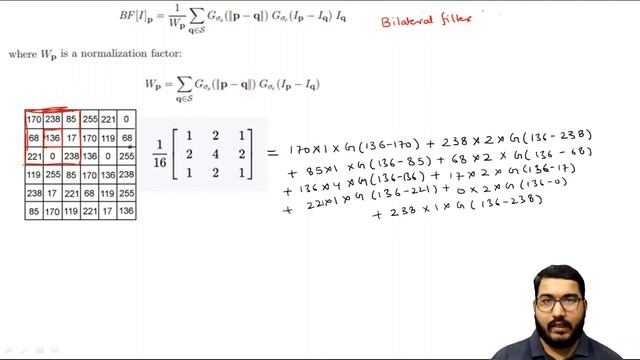 BF[I]ₚ = 1/Wₚ ∑ q∈S G_σs(‖p − q‖) G_σr(Iₚ − I_q) I_q
Bilateral filter
where Wₚ is a normalization factor:
Wₚ = ∑ q∈S G_σs(‖p − q‖) G_σr(Iₚ − I_q)
170 238 85 255 221 0
68 136 17 170 119 68
221 0 238 136 0 255
119 255 85 170 136 238
238 17 221 68 119 255
85 170 119 221 17 136
1/16
1 2 1
2 4 2
1 2 1
= 170×1×G(136-170) + 238×2×G(136-238)
+ 85×1×G(136-85) + 68×2×G(136-68)
+ 136×4×G(136-136) + 17×2×G(136-17)
+ 221×1×G(136-221) + 0×2×G(136-0)
+ 238×1×G(136-238)